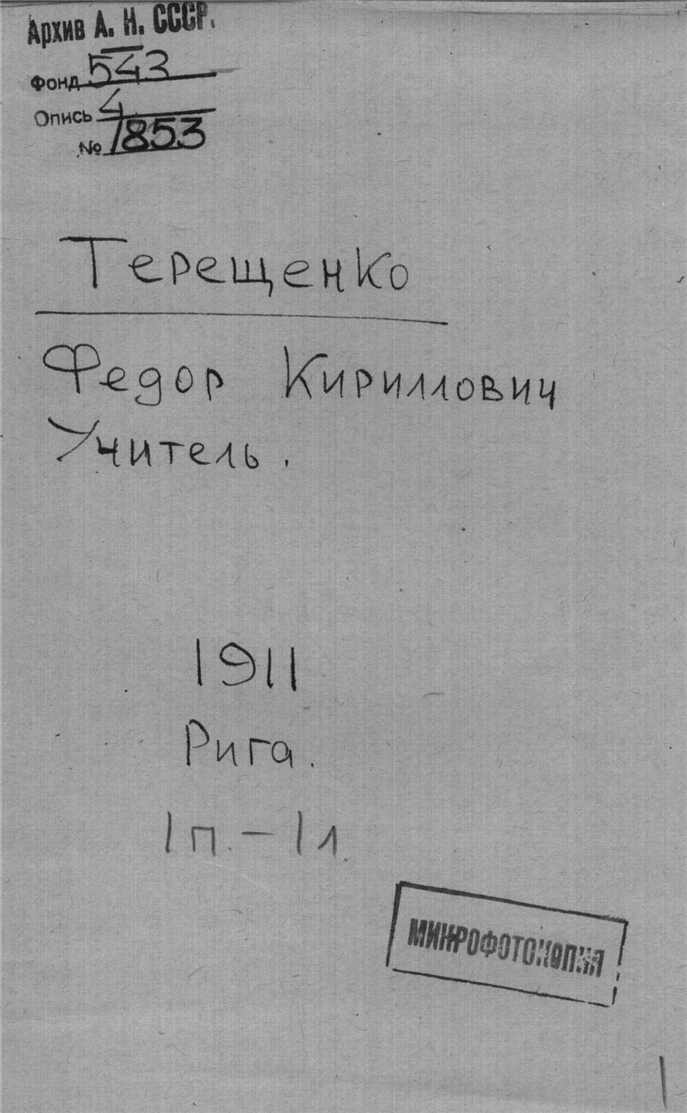 Архив А. Н. СССР.
Фонд 543
Опись 4
№ 1853
Терещенко
Федор Кириллович
Учитель.
1911
Рига.
1п. – 1л.
МИКРОФОТОКОПИЯ
1